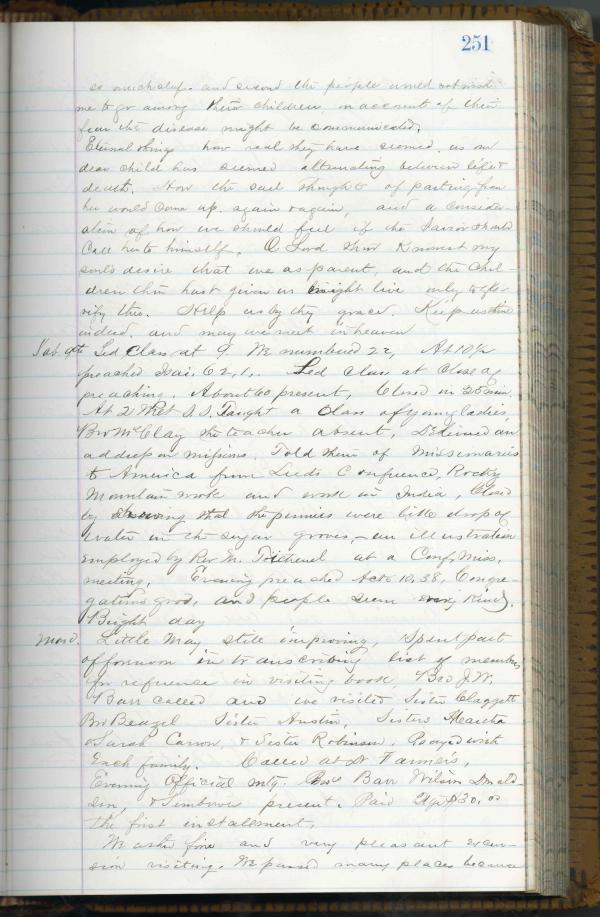 251
so much sleep. and second the people would not wish
me to go among their children, on account of their
fear the disease might be communicated.
Eternal things how real they have seemed, as our
dear child has seemed alternating between life &
death. How the sad thoughts of parting from
her would come up again & again, and a consider-
ation of how we should feel if the Savior should
Call her to himself. O Lord thou Knowest my
soul's desire that we as parent, and the chil-
dren thou hast given us might live only to glo-
rify thee. Help us by thy grace. Keep us thine
indeed. and may we meet in heaven
Sab Led Class at 9. We numbered 22, At 10½
preached Isai. 62,1. Led Class at Close of
preaching. About 60 present, Closed in 25 min.
At 2 Met S.S. Taught a Class of young ladies,
Bro McClay the teacher absent, Delivered an
address on missions. Told them of Missionaries
to America from Leeds Conference, Rocky
Mountain work and work in India, Closed
by showing that the pennies were little drops of
water in the sugar groves, - an illustration
employed by Rev M. at a Conf. Miss.
meeting, Evening preached Acts 10,38, Congre-
gations good, and people seem very kind.
Bright day
Mond. Little May still improving, Spent part
of forenoon in transcribing list of members
for reference in visiting book, Bro J.W.
Barr called and we visited Sister Claggett
Bro Beazel Sister Austin, Sisters Martha
& Sarah Carson, & Sister Robinson, Prayed with
Each family. Called at Farmer's,
Evening Official Mtg. Bros Barr Wilson
son, & present. Paid $30. as
the first installment.
We as fine and very pleasant excur-
sion visiting. We passed many places because